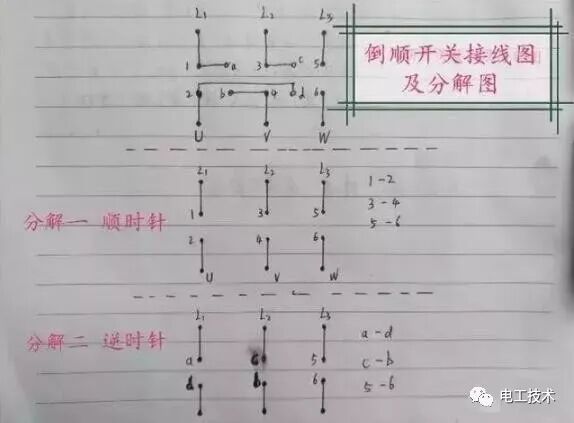 倒顺开关接线图
及分解图
L1 L2 L3
1 a 3 c 5
2 b 4 d 6
U V W
L1 L2 L3
1 3 5
1-2
3-4
5-6
分解一 顺时针
2 4 6
U V W
L1 L2 L3
分解二 逆时针
a c 5
d b 6
a-d
c-b
5-6
电工技术